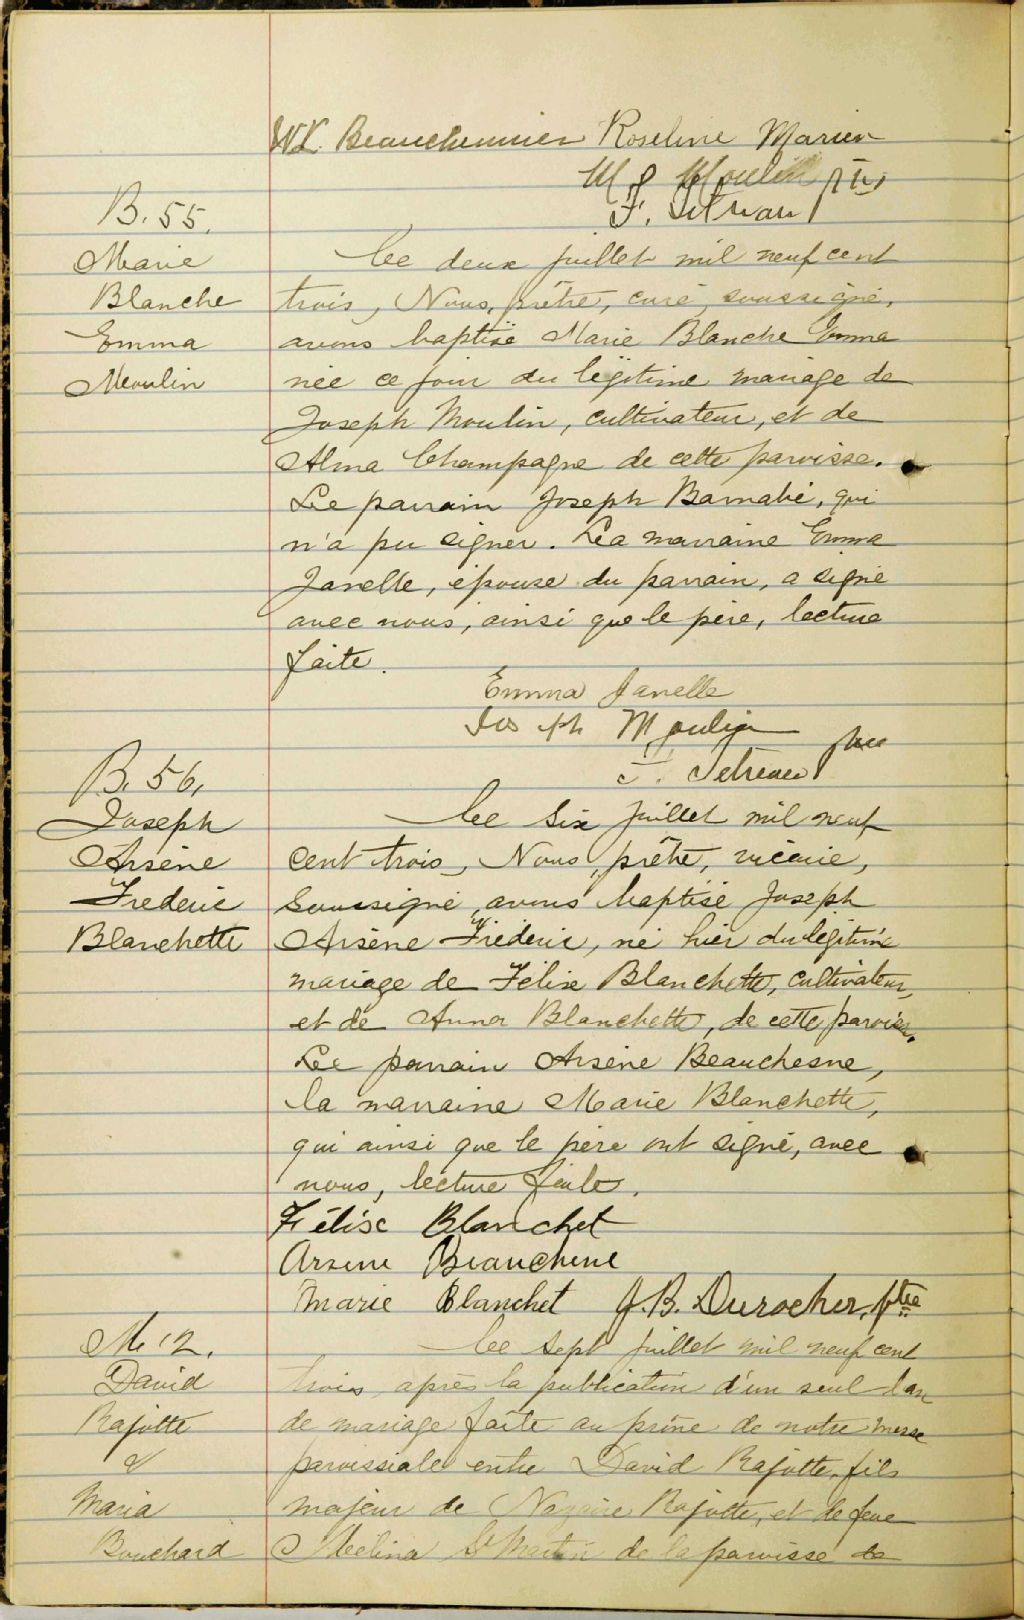 Beauchemin Roseline Marien
Moulin
F.
B. 55.
Marie
Blanche
Emma
Moulin
Ce deux juillet mil neuf cent
trois, Nous, prêtre, curé, soussigné,
avons baptisé Marie Blanche Emma
née ce jour du légitime mariage de
Joseph Moulin, cultivateur, et de
Alma Champagne de cette paroisse.
Le parrain Joseph Barnabé, qui
n'a pu signer. La marraine Emma
Janelle, épouse du parrain, a signé
avec nous, ainsi que le père, lecture
faite.
Emma Janelle
Joseph Moulin
F. ptre
B. 56,
Joseph
Arsène
Frederic
Blanchette
Ce six juillet mil neuf
cent trois, Nous, prêtre, vicaire,
soussigné, avons baptisé Joseph
Arsène Fréderic, né hier du légitime
mariage de Félix Blanchette, cultivateur,
et de Anna Blanchette, de cette paroisse.
Le parrain Arsène Beauchesne,
la marraine Marie Blanchette,
qui ainsi que le père ont signé, avec
nous, lecture faite.
Félise Blanchet
Arsene Beauchene
Marie Blanchet J. B. Durocher, ptre
M 12.
David
Rajotte
&
Maria
Bouchard
Ce sept juillet mil neuf cent
trois, après la publication d'un seul ban
de mariage faite au prône de notre messe
paroissiale entre David Rajotte, fils
majeur de Nazaire Rajotte, et de feue
Mélina St Martin de la paroisse de